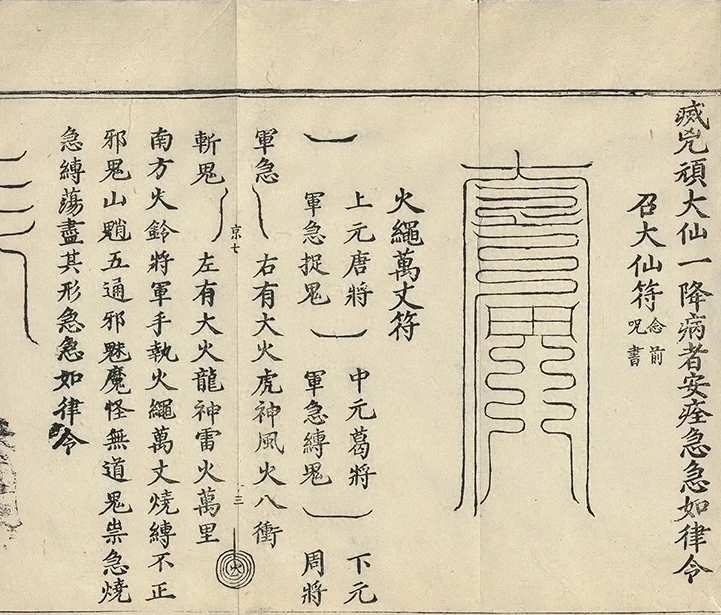 滅兇頑大仙一降病者安痊急急如律令
召大仙符 念前呪書
火繩萬丈符
上元唐將 中元葛將 下元
軍急捉鬼 軍急縛鬼 周將
軍急 右有大火虎神風火八衝
京七 十三 火
斬鬼 左有大火龍神雷火萬里
南方火鈴將軍手執火繩萬丈燒縛不正
邪鬼山魈五通邪魅魔怪無道鬼祟急燒
急縛蕩盡其形急急如律令